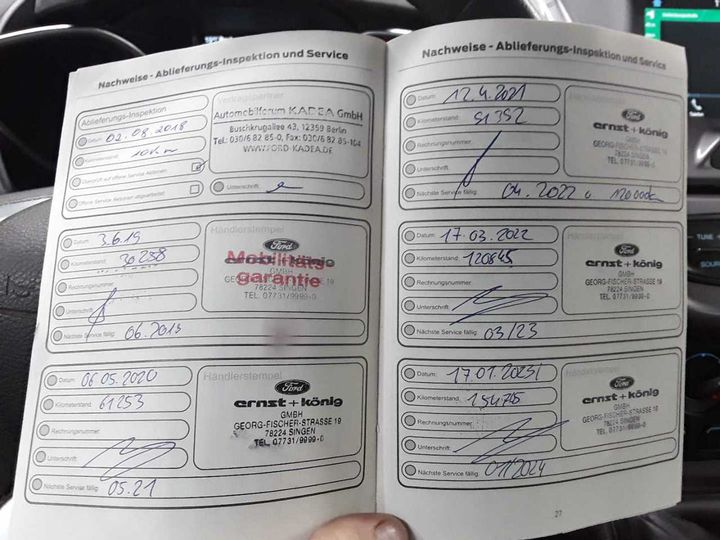 Nachweise - Ablieferungs-Inspektion und Service
Ablieferungs-Inspektion
Datum: 02.08.2018
Kilometerstand: 10km
Überprüft auf offene Service Aktionen:
Offene Service Aktionen abgearbeitet:
Vertragspartner
Automobilforum KADEA GmbH
Buschkrugallee 43, 12359 Berlin
Tel.: 030/6 82 85-0, Fax: 030/6 82 85-104
WWW.FORD-KADEA.DE
Unterschrift:
Datum: 3.6.19
Kilometerstand: 30258
Rechnungsnummer:
Unterschrift:
Nächste Service fällig: 06.2019
Händlerstempel
Ford
Mobilitäts-
garantie
ernst+könig
GMBH
GEORG-FISCHER-STRASSE 19
78224 SINGEN
TEL. 07731/9999-0
Datum: 06.05.2020
Kilometerstand: 61253
Rechnungsnummer:
Unterschrift:
Nächste Service fällig: 05.21
Händlerstempel
Ford
ernst+könig
GMBH
GEORG-FISCHER-STRASSE 19
78224 SINGEN
TEL. 07731/9999-0
Nachweise - Ablieferungs-Inspektion und Service
Datum: 12.4.2021
Kilometerstand: 91352
Rechnungsnummer:
Unterschrift:
Nächste Service fällig: 04.2022 o 120000
Ford
ernst+könig
GMBH
GEORG-FISCHER-STRASSE 19
78224 SINGEN
TEL. 07731/9999-0
Datum: 17.03.2022
Kilometerstand: 120845
Rechnungsnummer:
Unterschrift:
Nächste Service fällig: 03/23
Händlerstempel
Ford
ernst+könig
GMBH
GEORG-FISCHER-STRASSE 19
78224 SINGEN
TEL. 07731/9999-0
Datum: 17.01.2023
Kilometerstand:
Rechnungsnummer:
Unterschrift:
Nächste Service fällig: 01/2024
Händlerstempel
Ford
ernst+könig
GMBH
GEORG-FISCHER-STRASSE 19
78224 SINGEN
TEL. 07731/9999-0
27
TUNE